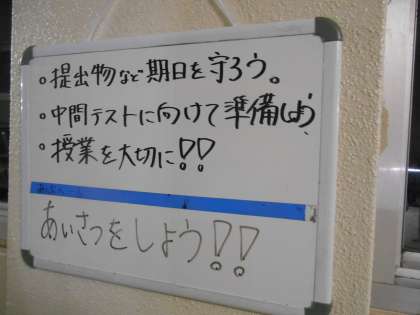 。提出物など期日を守ろう。
。中間テストに向けて準備しよう
。授業を大切に!!
あいさつをしよう!!